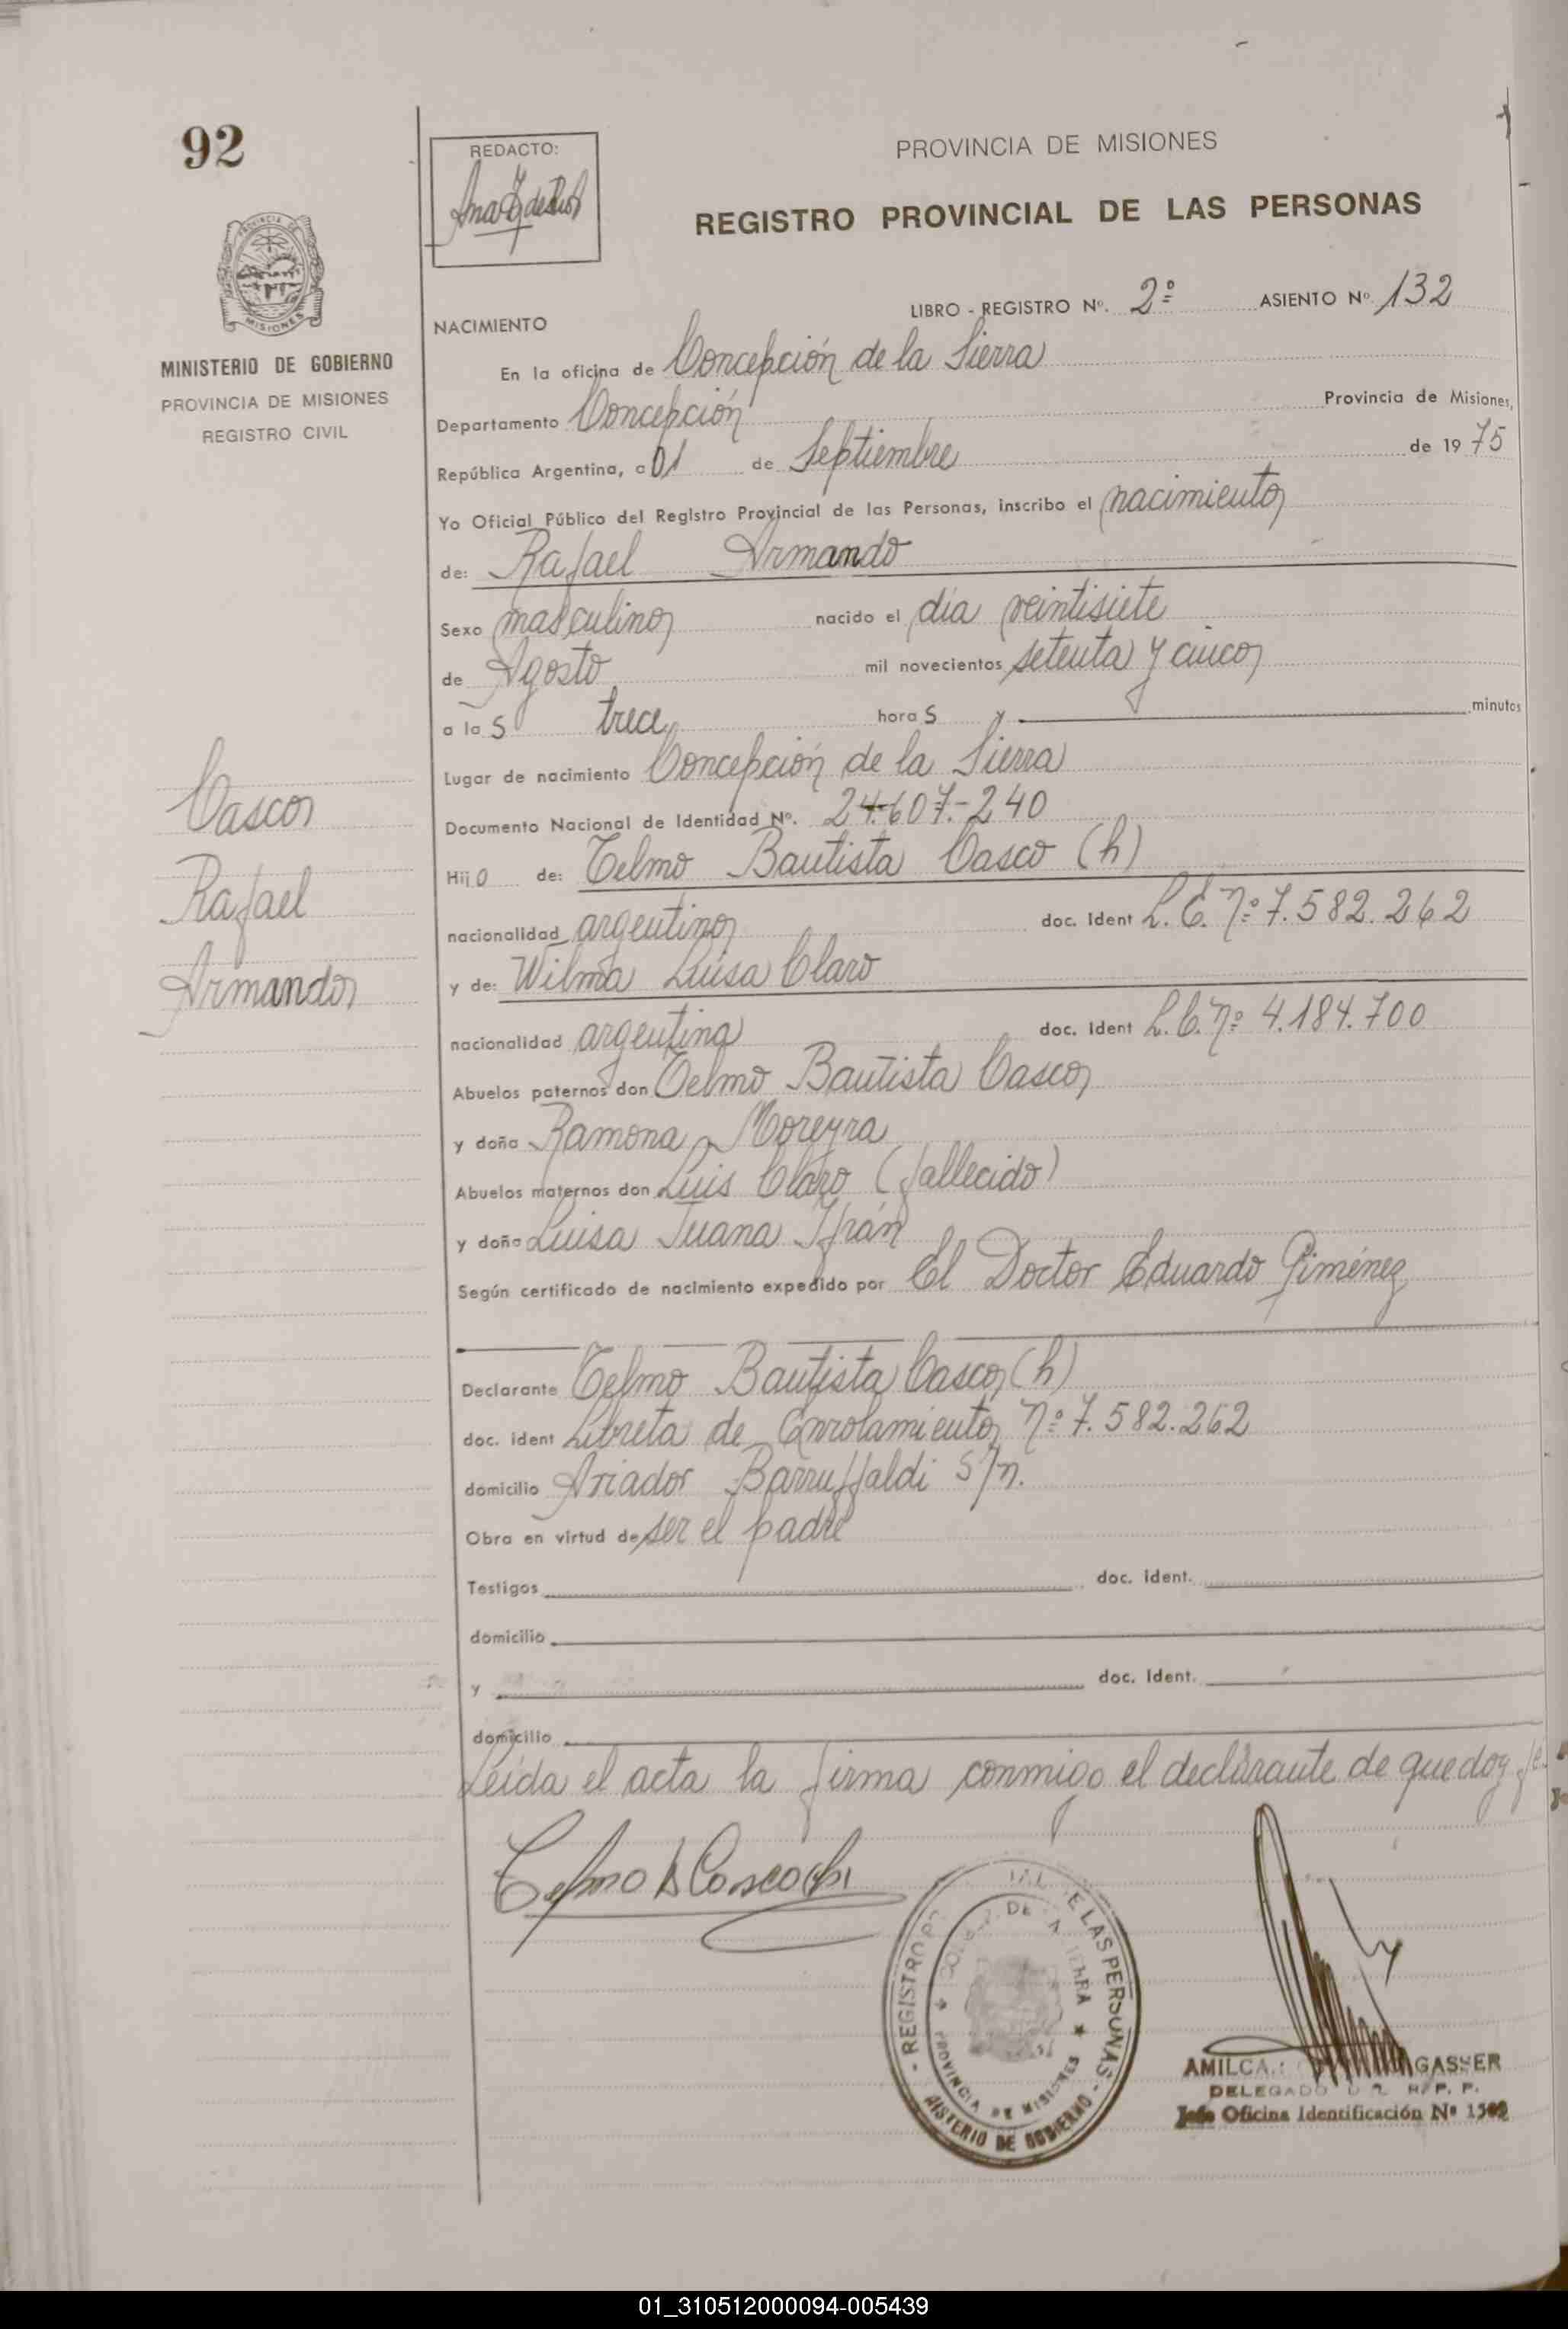 92
REDACTO:
PROVINCIA DE MISIONES
REGISTRO PROVINCIAL DE LAS PERSONAS
MISIONES
MINISTERIO DE GOBIERNO
PROVINCIA DE MISIONES
REGISTRO CIVIL
LIBRO - REGISTRO Nº. 2º ASIENTO Nº 132
NACIMIENTO
En la oficina de Concepción de la Sierra
Departamento Concepción Provincia de Misiones,
República Argentina, a 01 de Septiembre de 1975
Yo Oficial Público del Registro Provincial de las Personas, inscribo el nacimiento
de: Rafael Armando
Sexo masculino nacido el día veintisiete
de Agosto mil novecientos setenta y cinco
a las trece horas y minutos
Lugar de nacimiento Concepción de la Sierra
Documento Nacional de Identidad Nº. 24.607.-240
Hijo de: Telmo Bautista Casco (h)
nacionalidad argentino doc. Ident L. E. nº 7.582.262
y de: Wilma Luisa Claro
nacionalidad argentina doc. Ident L.C. nº 4.184.700
Abuelos paternos don Telmo Bautista Casco
y doña Ramona Moreyra
Abuelos maternos don Luis Claro (fallecido)
y doña Luisa Juana Ifrán
Según certificado de nacimiento expedido por El Doctor Eduardo Giménez
Declarante Telmo Bautista Casco (h)
doc. ident Libreta de Enrolamiento nº 7.582.262
domicilio Aviador Barruffaldi S/n.
Obra en virtud de ser el padre
Testigos doc. ident.
domicilio
y doc. Ident.
domicilio
Leída el acta la firma conmigo el declarante de que doy fe.
Casco
Rafael
Armando
Telmo B Casco (h)
REGISTRO DE LAS PERSONAS
PROVINCIA DE MISIONES
DE GOBIERNO
GASSER
DELEGADO R. P. P.
Jefe Oficina Identificación Nº
01_310512000094-005439